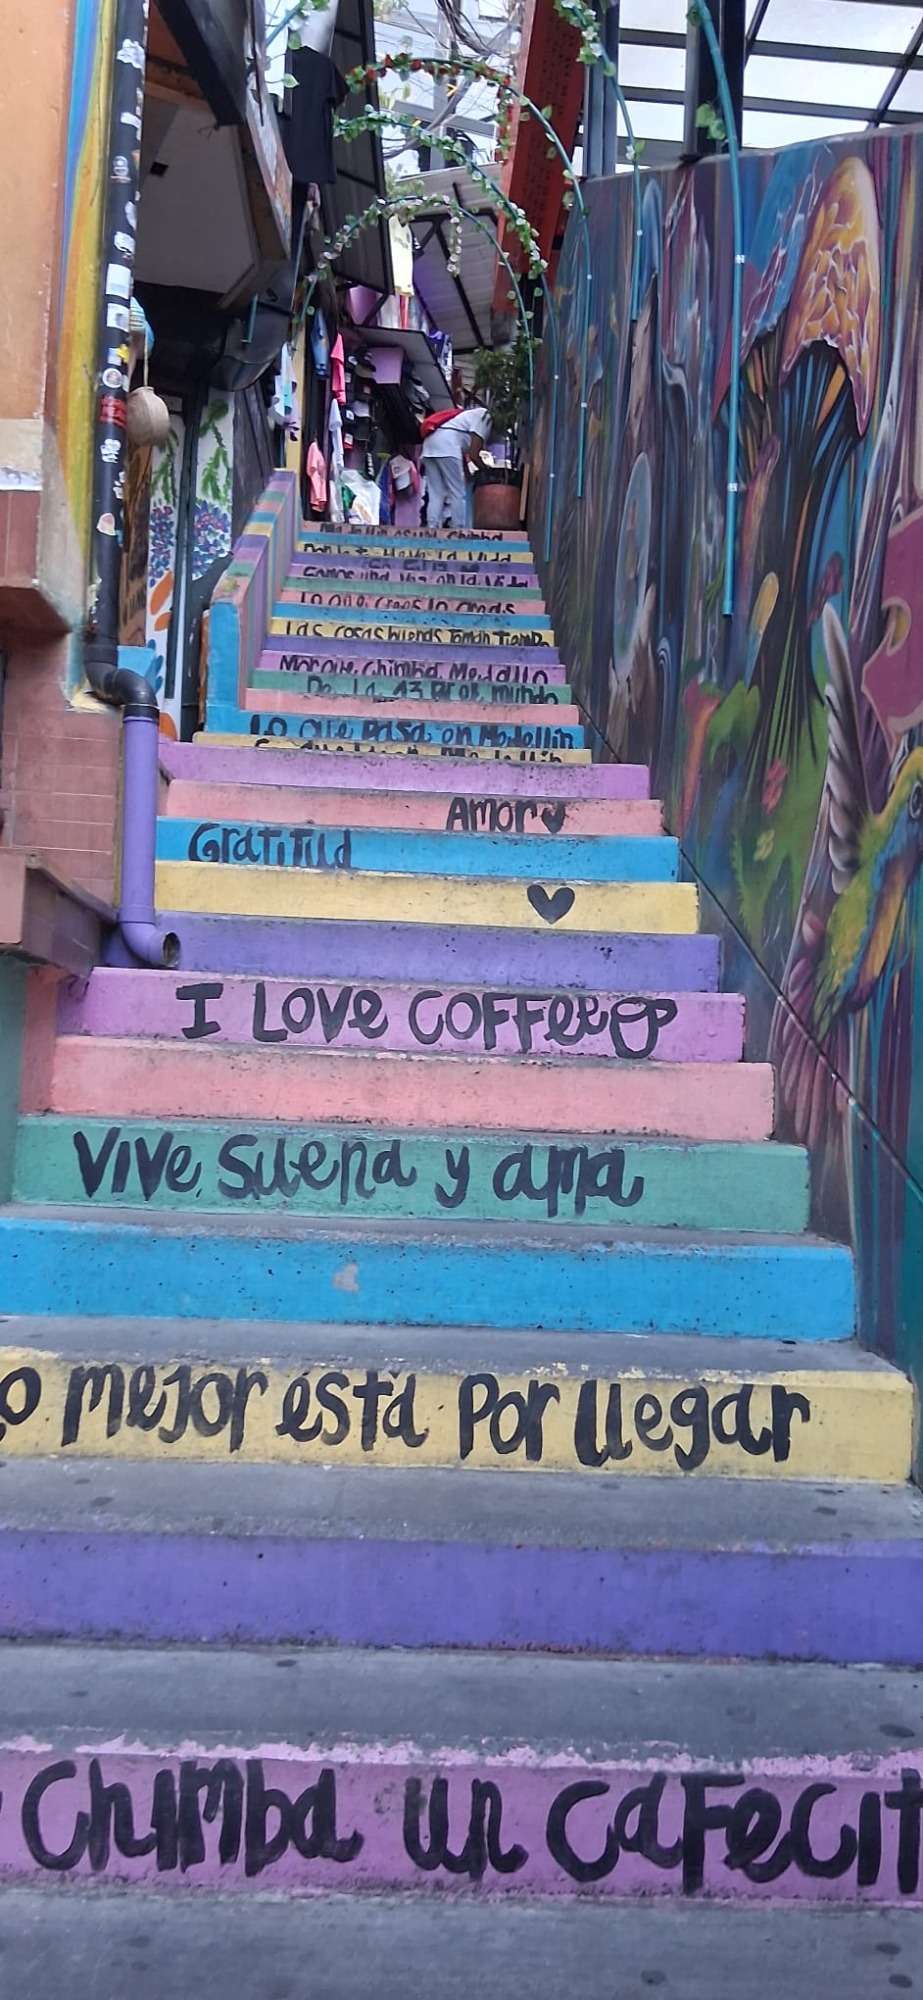 Medellin es una Chimba
Somos una Vez en la Vida
Lo que Crees lo Creas
Las cosas buenas Toman Tiempo
Mor que Chimba Medallo
De La 13 Pa el mundo
Lo que Pasa en Medellin
Se queda en Medellin
Amor
Gratitud
I LOVe COFFee
ViVe Suena y ama
o mejor está Por llegar
Chimba un Cafecit